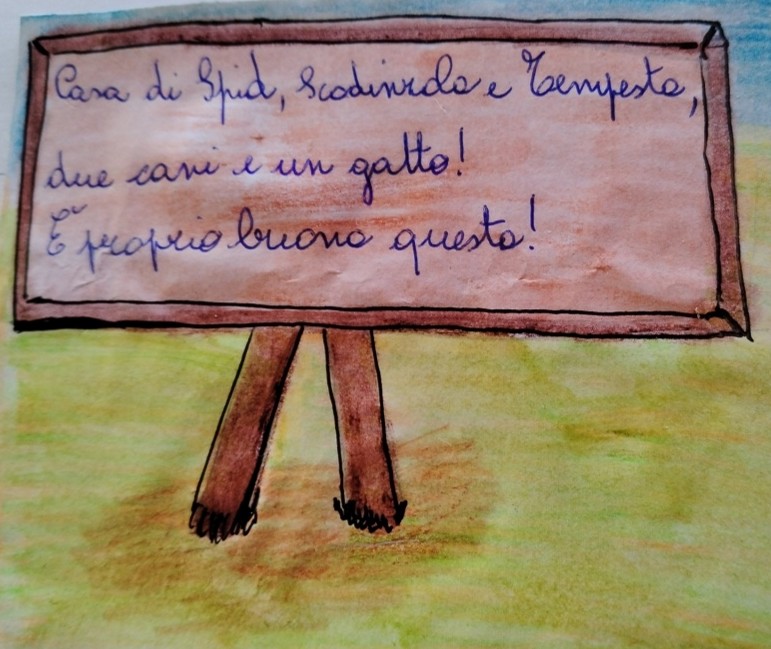 Casa di Spid, Scodinzola e Tempesta,
due cani e un gatto!
È proprio buona questa!